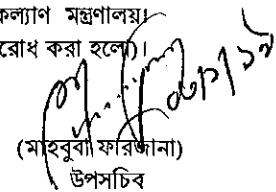 কল্যাণ মন্ত্রণালয়।
রোধ করা হলো)।
(মাহবুবা ফারজানা)
উপসচিব